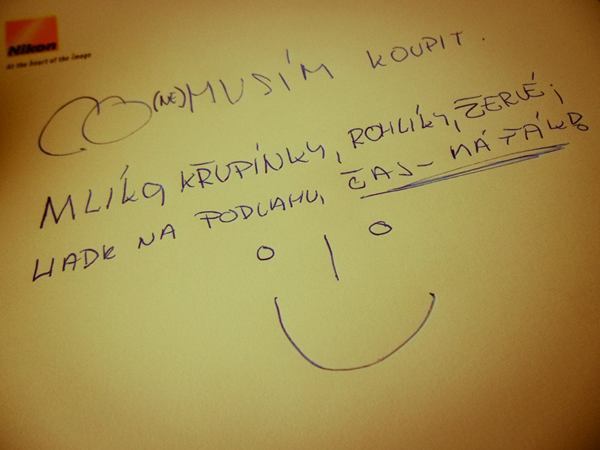 Nikon
At the heart of the image
(NE)MUSÍM KOUPIT.
MLÍKO, KŘUPÍNKY, ROHLÍKY, ŽERVÉ,
HADR NA PODLAHU, ČAJ - NÁŤÁKB